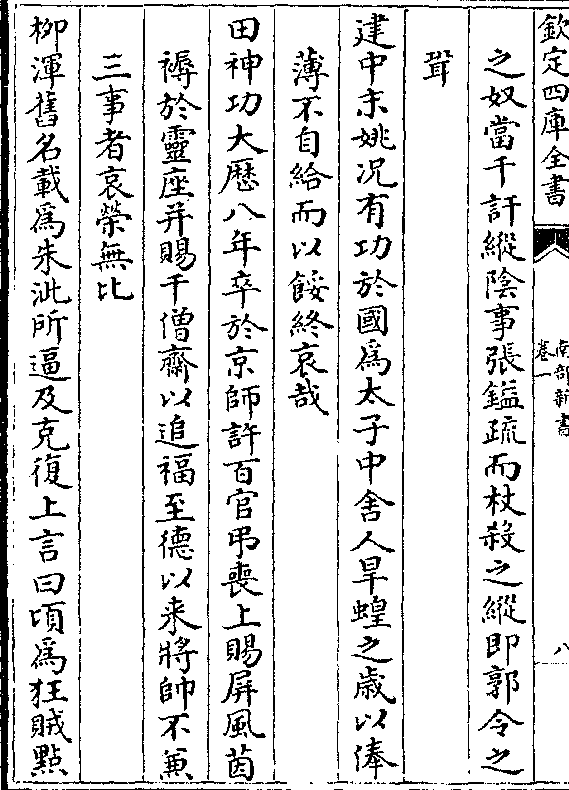 欽定四庫全書
南部新書
卷一
八
之奴當千訐縱陰事張鎰疏而杖殺之縱即郭令之
壻
建中末姚況有功於國為太子中舍人旱蝗之歲以俸
薄不自給而以餒終哀哉
田神功大厯八年卒於京師許百官弔喪上賜屏風茵
褥於靈座并賜千僧齋以追福至德以来將帥不兼
三事者哀榮無比
柳渾舊名載為朱泚所逼及克復上言曰頃為狂賊點